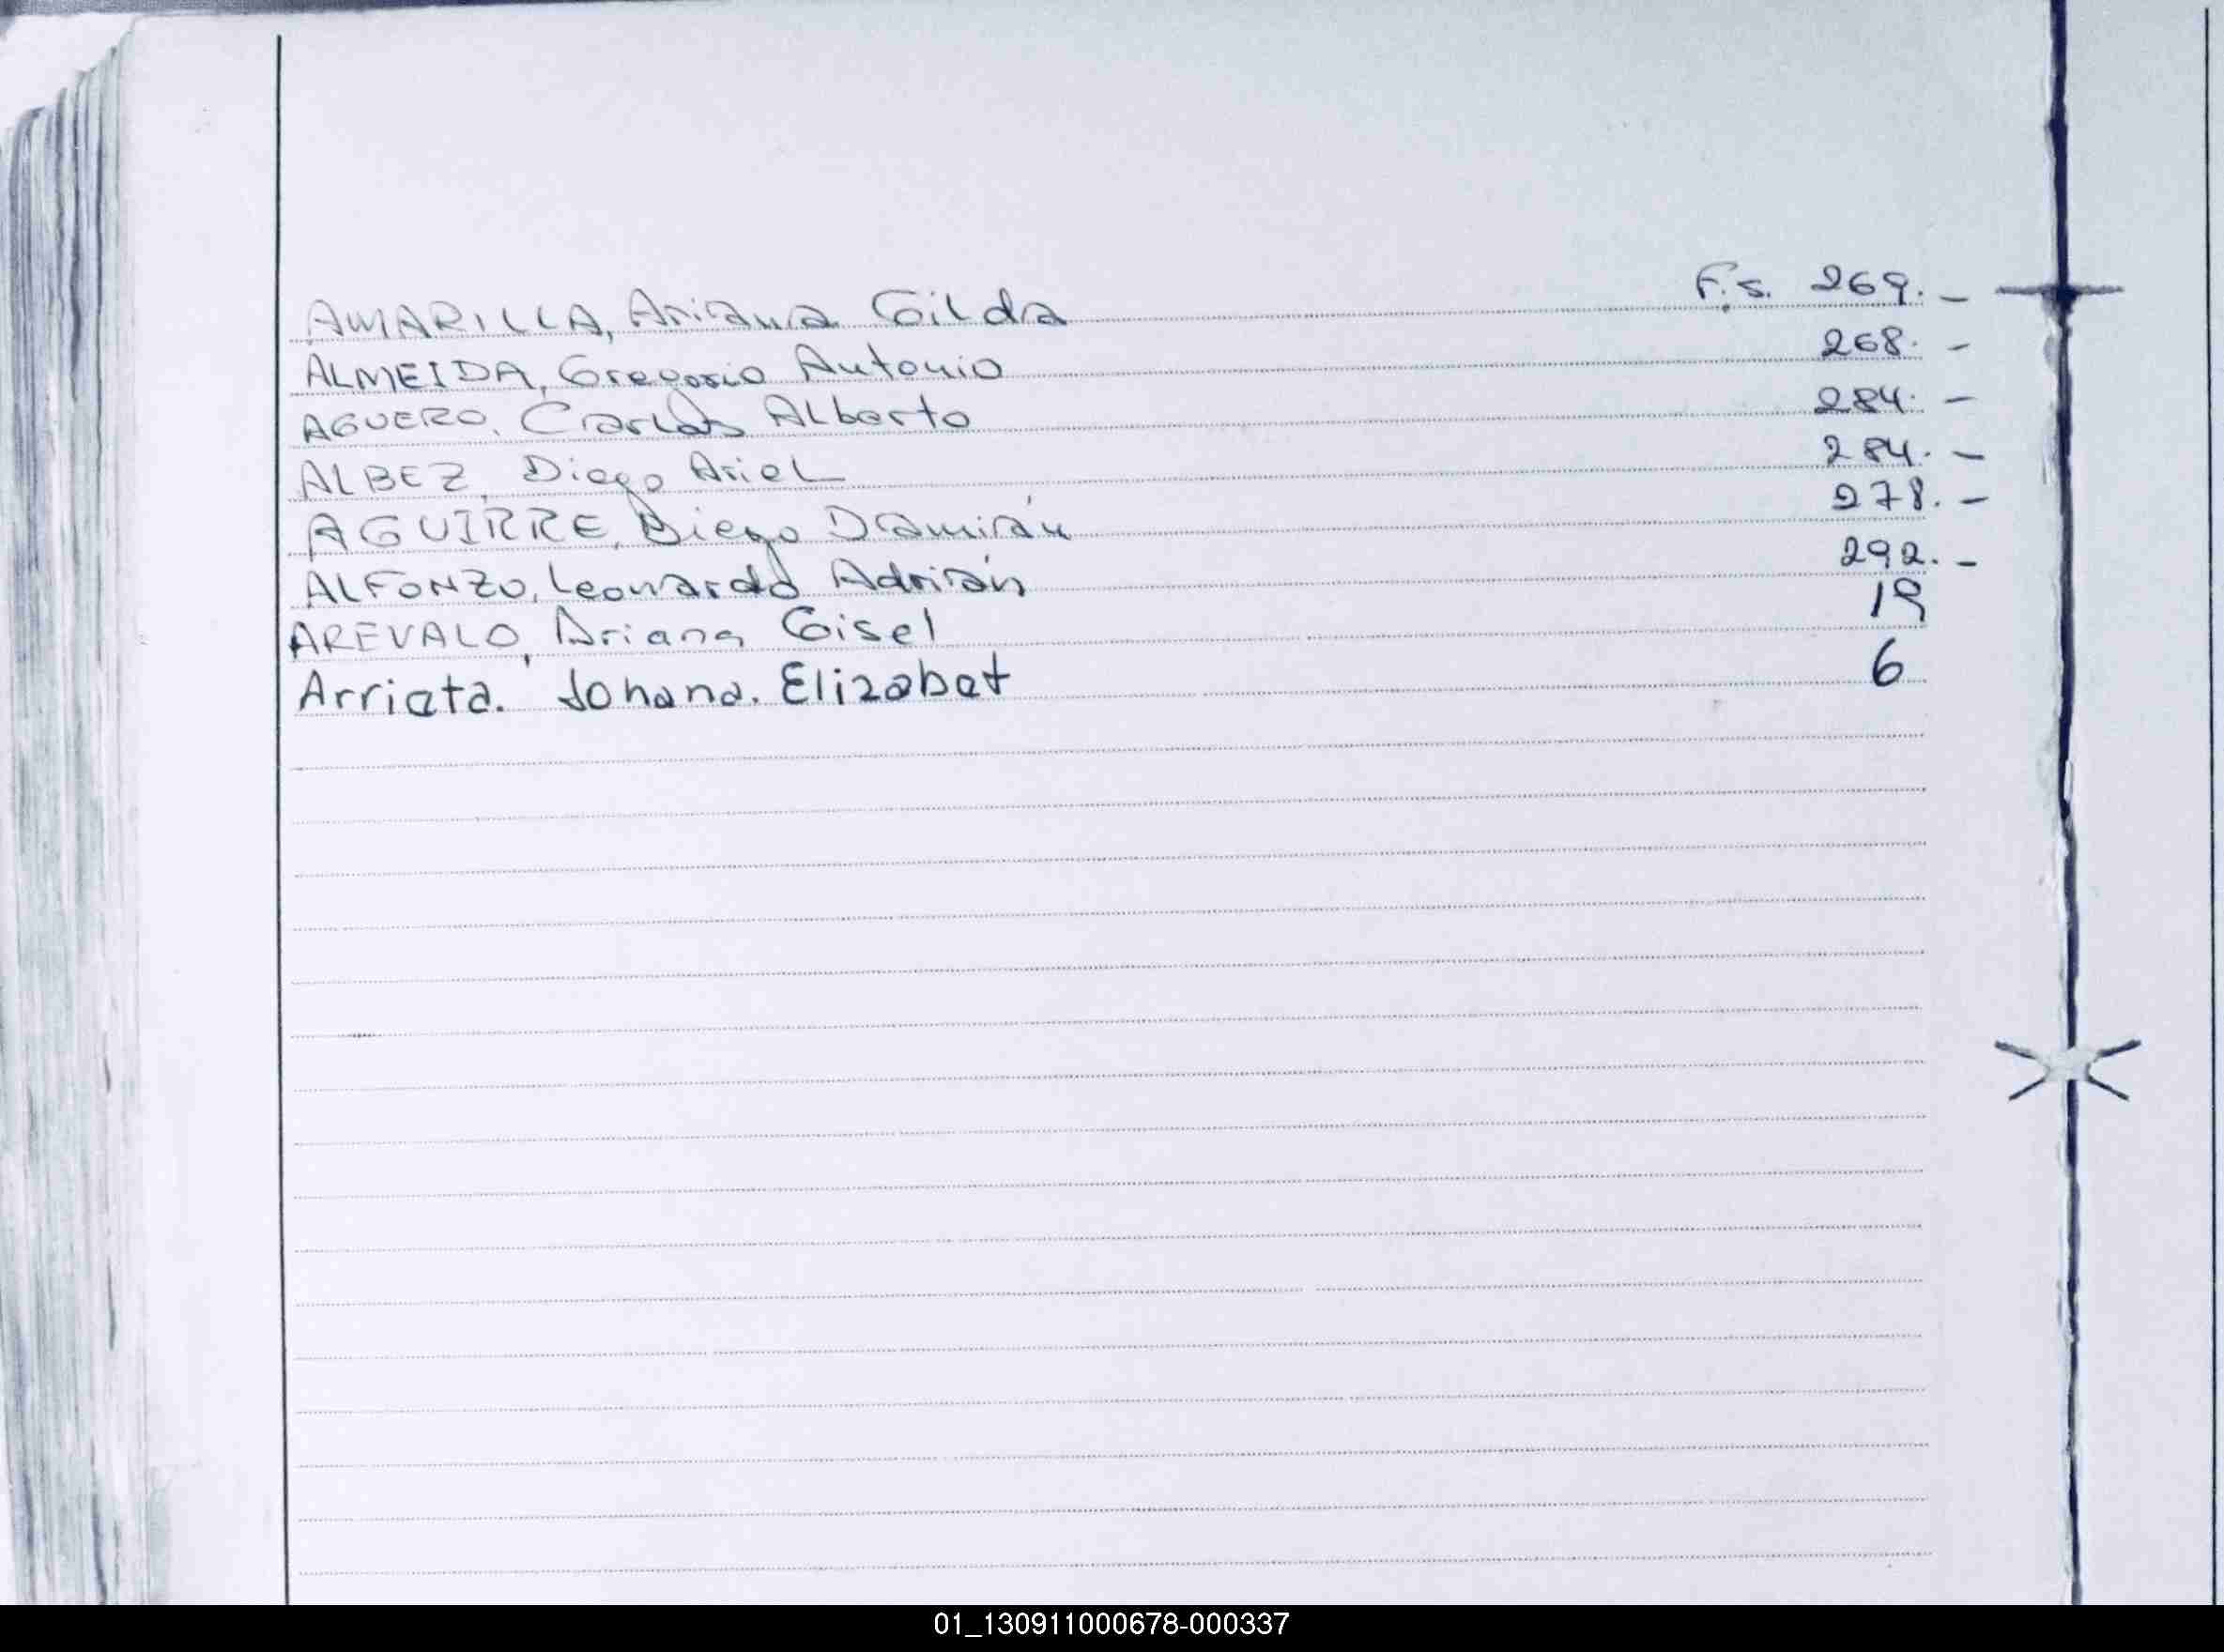 AMARILLA, Ariana Gilda F.s. 269. -
ALMEIDA, Gregorio Antonio 268. -
AGUERO, Carlos Alberto 284. -
ALBEZ, Diego Ariel 284. -
AGUIRRE, Diego Damián 278. -
ALFONZO, Leonardo Adrián 292. -
AREVALO, Ariana Gisel 19
Arrieta. Johana. Elizabet 6
01_130911000678-000337